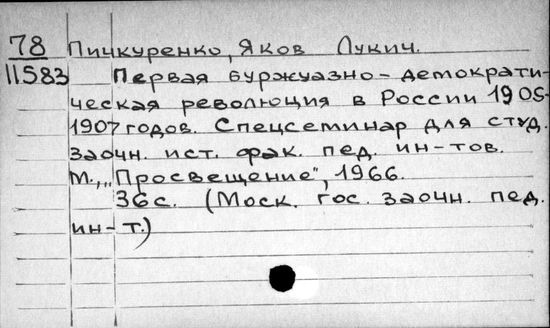 78 Пичкуренко, Яков Лукич.
11583 Первая буржуазно-демократи-
ческая революция в России 1905-
1907 годов. Спецсеминар для студ.
заочн. ист. фак. пед. ин-тов.
М., „Просвещение", 1966.
36с. (Моск. гос. заочн. пед.
ин-т.)